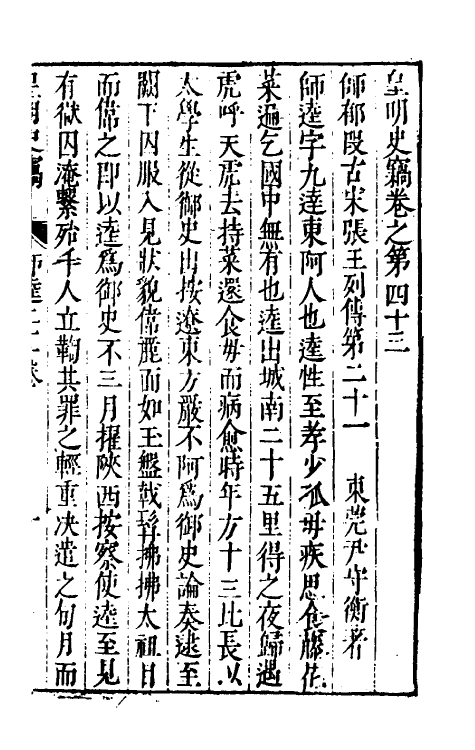 皇明史竊卷之第四十三
師郁段古宋張王列傳第二十一　東莞尹守衡著
師逵字九達東阿人也逵性至孝少孤毋疾思食藤花
菜遍乞國中無有也逵出城南二十五里得之夜歸遇
虎呼天虎去持菜還食毋而病愈時年方十三比長以
太學生從御史出按遼東方嚴不阿爲御史論奏逮至
闕下囚服入見狀貌偉麗面如玉盤戟髯拂拂太祖目
而偉之即以逵爲御史不三月擢陝西按察使逵至見
有獄囚淹繫殆千人立鞫其罪之輕重决遣之旬月而
皇明史竊　師逵　四十三卷　一